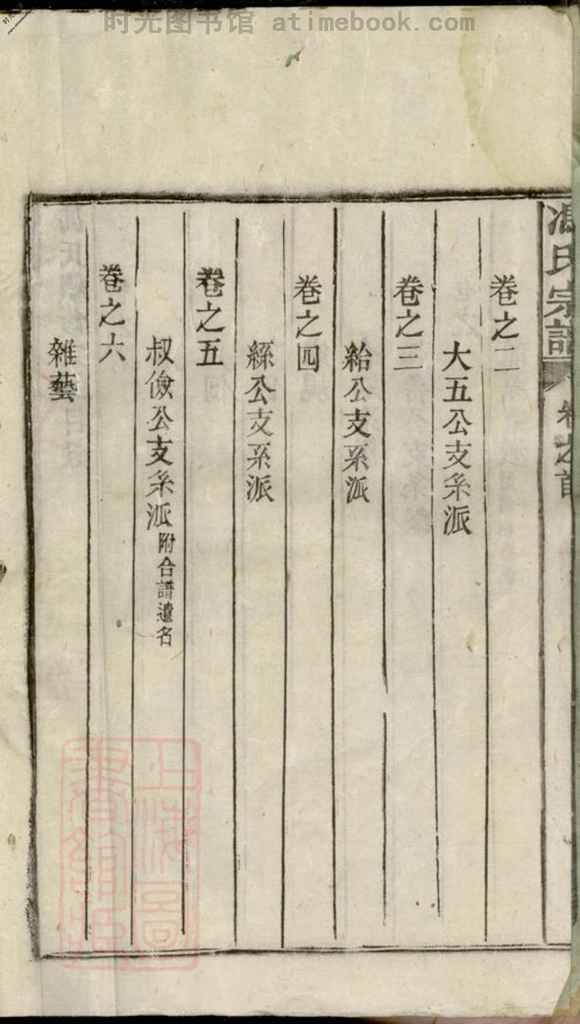 时光图书馆 atimebook.com
馮氏宗譜 卷之首
卷之二
大五公支系派
卷之三
給公支系派
卷之四
縣公支系派
卷之五
叔儉公支系派 附合譜遺名
卷之六
雜藝